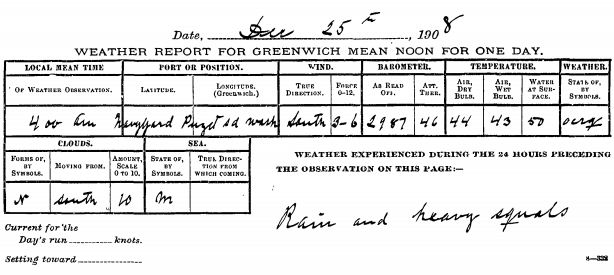 Date, Dec 25th, 1908
WEATHER REPORT FOR GREENWICH MEAN NOON FOR ONE DAY.
LOCAL MEAN TIME PORT OR POSITION. WIND. BAROMETER. TEMPERATURE. WEATHER.
OF WEATHER OBSERVATION. LATITUDE. LONGITUDE (Greenwich.) TRUE DIRECTION. FORCE 0–12. AS READ OFF. ATT. THER. AIR, DRY BULB. AIR, WET BULB. WATER AT SURFACE. STATE OF, BY SYMBOLS.
4 00 am Navy yard Puget sd wash South 3-6 2987 46 44 43 50
CLOUDS. SEA.
FORMS OF, BY SYMBOLS. MOVING FROM. AMOUNT, SCALE 0 TO 10. STATE OF, BY SYMBOLS. TRUE DIRECTION FROM WHICH COMING.
N South 10 M
WEATHER EXPERIENCED DURING THE 24 HOURS PRECEDING
THE OBSERVATION ON THIS PAGE:—
Rain and heavy squals
Current for the
Day's run knots.
Setting toward
8—332